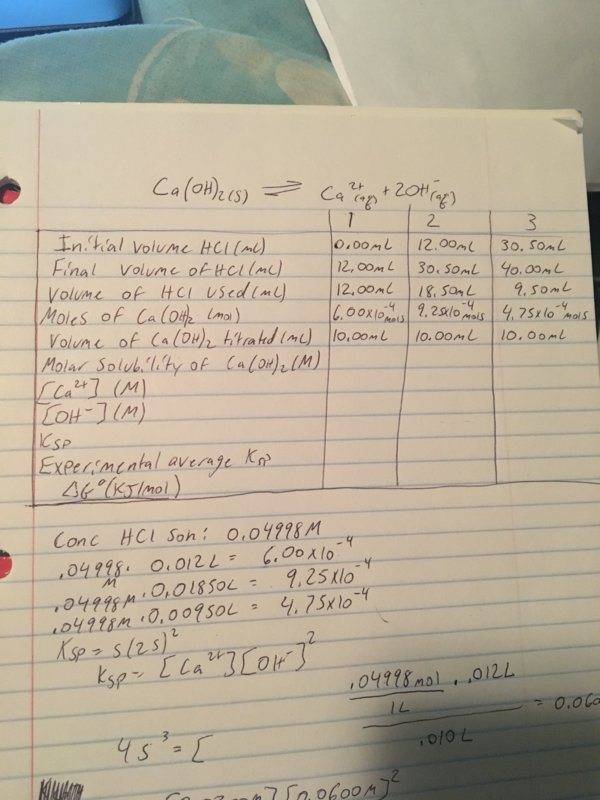 Ca(OH)₂(s) ⇌ Ca²⁺(aq) + 2OH⁻(aq)
1 2 3
Initial volume HCl (mL) 0.00mL 12.00mL 30.50mL
Final volume of HCl (mL) 12.00mL 30.50mL 40.00mL
Volume of HCl used (mL) 12.00mL 18.50mL 9.50mL
Moles of Ca(OH)₂ (mol) 6.00x10⁻⁴ mols 9.25x10⁻⁴ mols 4.75x10⁻⁴ mols
Volume of Ca(OH)₂ titrated (mL) 10.00mL 10.00mL 10.00mL
Molar Solubility of Ca(OH)₂ (M)
[Ca²⁺] (M)
[OH⁻] (M)
Ksp
Experimental average Ksp
ΔG° (KJ/mol)
Conc HCl soln: 0.04998M
.04998M · 0.012L = 6.00x10⁻⁴
.04998M · 0.01850L = 9.25x10⁻⁴
.04998M · 0.00950L = 4.75x10⁻⁴
Ksp = s(2s)²
Ksp = [Ca²⁺][OH⁻]²
.04998mol · .012L
1L
.010L
= 0.060
4s³ = [
][0.0600M]²